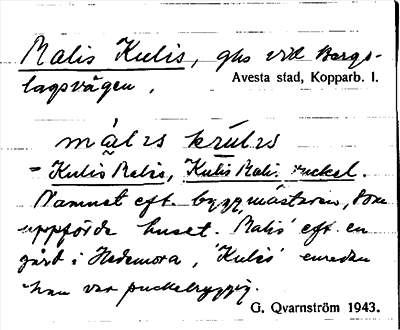 Malis Kulis, ghs vid Bergs-
lagsvägen.
Avesta stad, Kopparb. l.
må`lıs krú`lıs
= Kulis Malis, Kulis Mali. ruckel.
Namnet eft. byggmästaren, som
uppförde huset. 'Malis' eft. en
gård i Hedemora, 'Kulis' emedan
han var puckelryggig.
G. Qvarnström 1943.